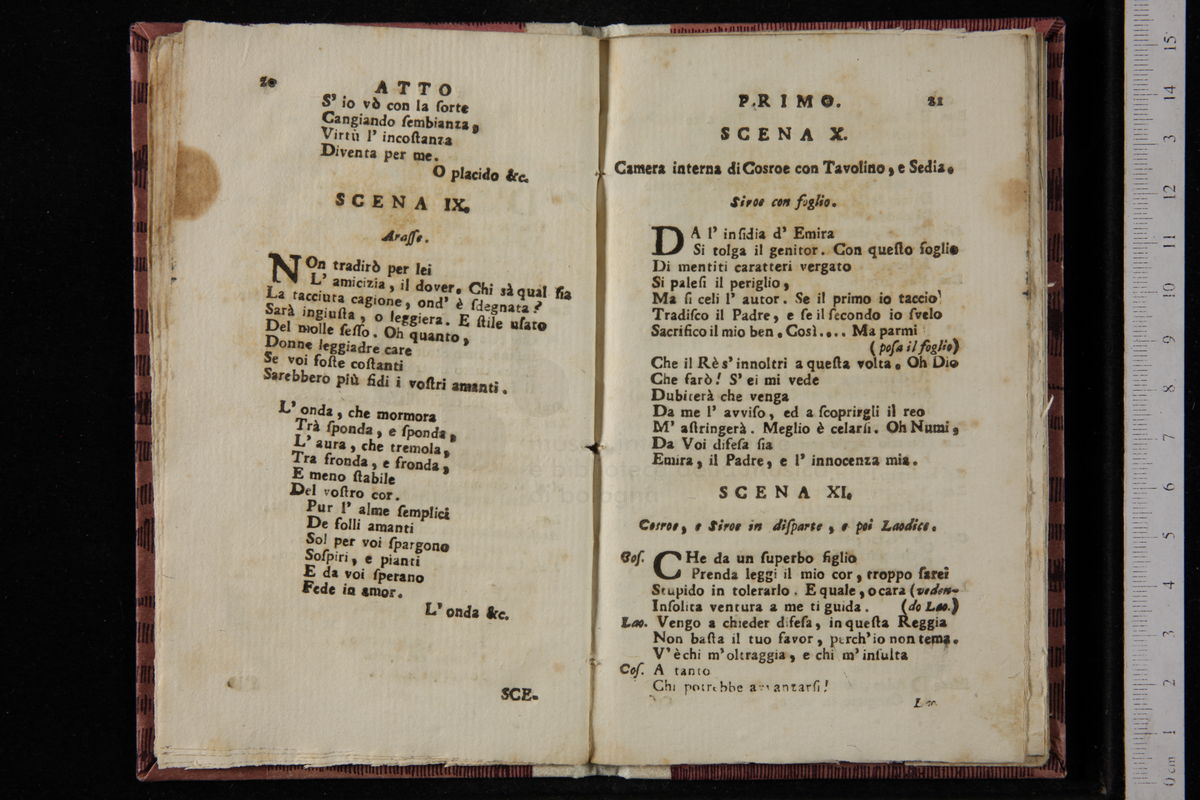 20
ATTO
S' io vò con la ſorte
Cangiando ſembianza,
Virtù l' incoſtanza
Diventa per me.
O placido &c.
SCENA IX.
Araſſe.
NOn tradirò per lei
L' amicizia, il dover. Chi sà qual ſia
La tacciuta cagione, ond' è ſdegnata?
Sarà ingiuſta, o leggiera. E ſtile uſato
Del molle ſeſſo. Oh quanto,
Donne leggiadre care
Se voi foſte coſtanti
Sarebbero più fidi i voſtri amanti.
L' onda, che mormora
Trà ſponda, e ſponda,
L' aura, che tremola,
Tra fronda, e fronda,
E meno ſtabile
Del voſtro cor.
Pur l' alme ſemplici
De folli amanti
Sol per voi ſpargono
Soſpiri, e pianti
E da voi ſperano
Fede in amor.
L' onda &c.
SCE-
PRIMO.
21
SCENA X.
Camera interna di Cosroe con Tavolino, e Sedia.
Siroe con foglio.
DA l' inſidia d' Emira
Si tolga il genitor. Con queſto foglio
Di mentiti caratteri vergato
Si paleſi il periglio,
Ma ſi celi l' autor. Se il primo io taccio
Tradiſco il Padre, e ſe il ſecondo io ſvelo
Sacrifico il mio ben. Così.... Ma parmi
(poſa il foglio)
Che il Rè s' innoltri a queſta volta. Oh Dio
Che farò! S' ei mi vede
Dubiterà che venga
Da me l' avviſo, ed a ſcoprirgli il reo
M' aſtringerà. Meglio è celarſi. Oh Numi,
Da Voi difeſa ſia
Emira, il Padre, e l' innocenza mia.
SCENA XI.
Cosroe, e Siroe in diſparte, e poi Laodice.
Coſ. CHe da un ſuperbo figlio
Prenda leggi il mio cor, troppo ſarei
Stupido in tolerarlo. E quale, o cara (veden-
Inſolita ventura a me ti guida. (do Lao.)
Lao. Vengo a chieder difeſa, in queſta Reggia
Non baſta il tuo favor, perch' io non tema.
V' è chi m' oltraggia, e chi m' inſulta
Coſ. A tanto
Chi potrebbe avanzarſi!
Lao.
museum
e bibliotec
di bologna
15
14
13
12
11
10
9
8
7
6
5
4
3
2
1
0 cm